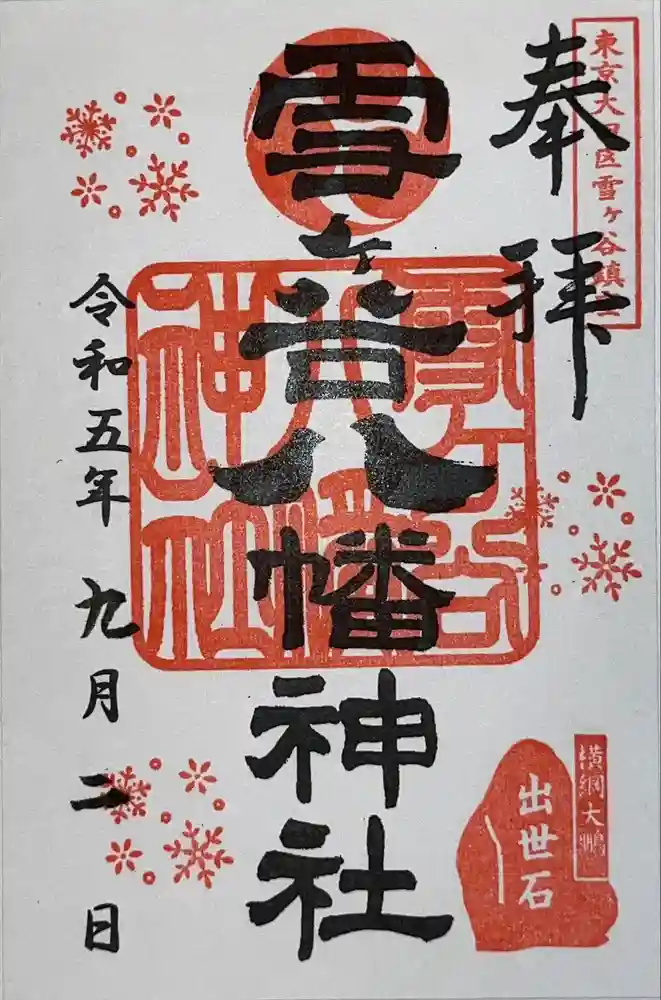 東京大田区雪ヶ谷鎮
奉拝
雪ヶ谷八幡神社
雪ヶ谷
八幡
神社
令和五年 九月二日
横綱大鵬
出世石